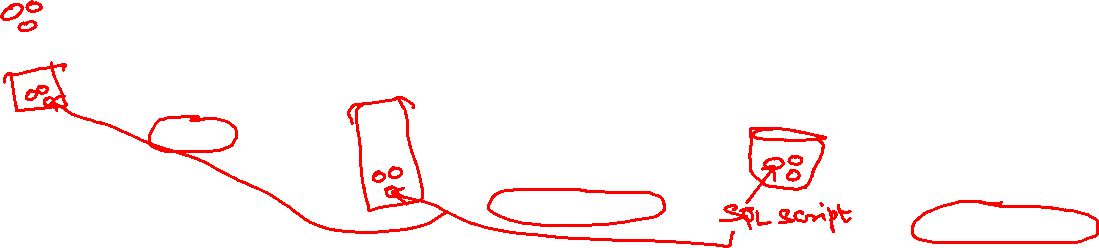 SQL script